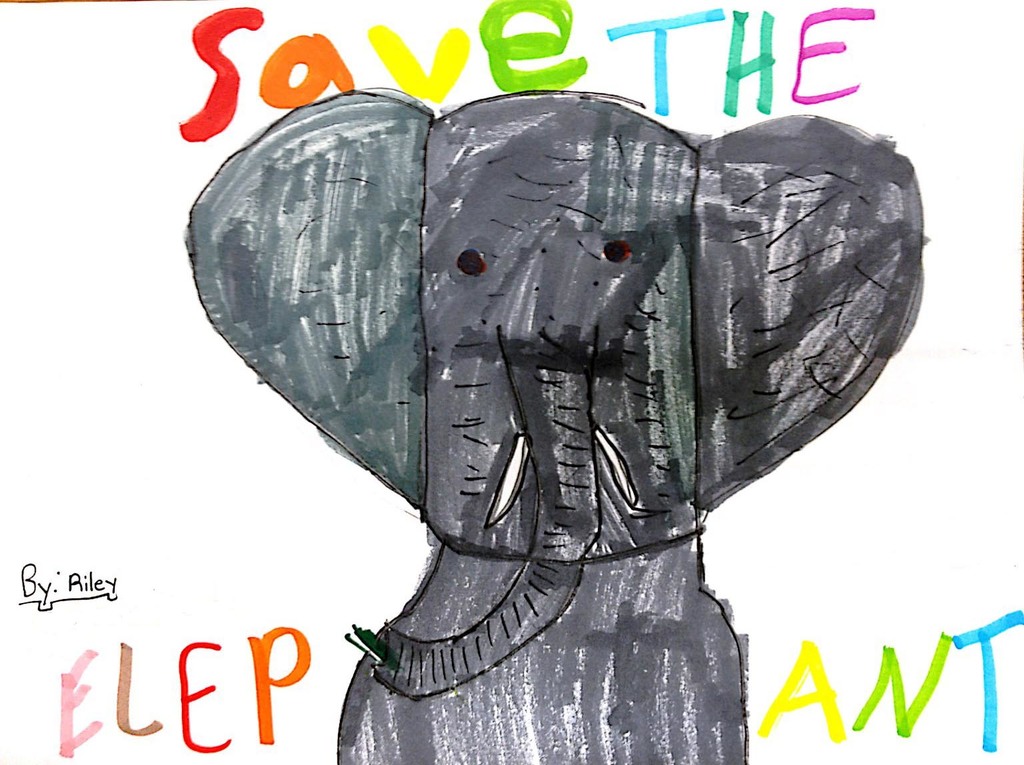 Save THE
By: Riley
ELEP ANT